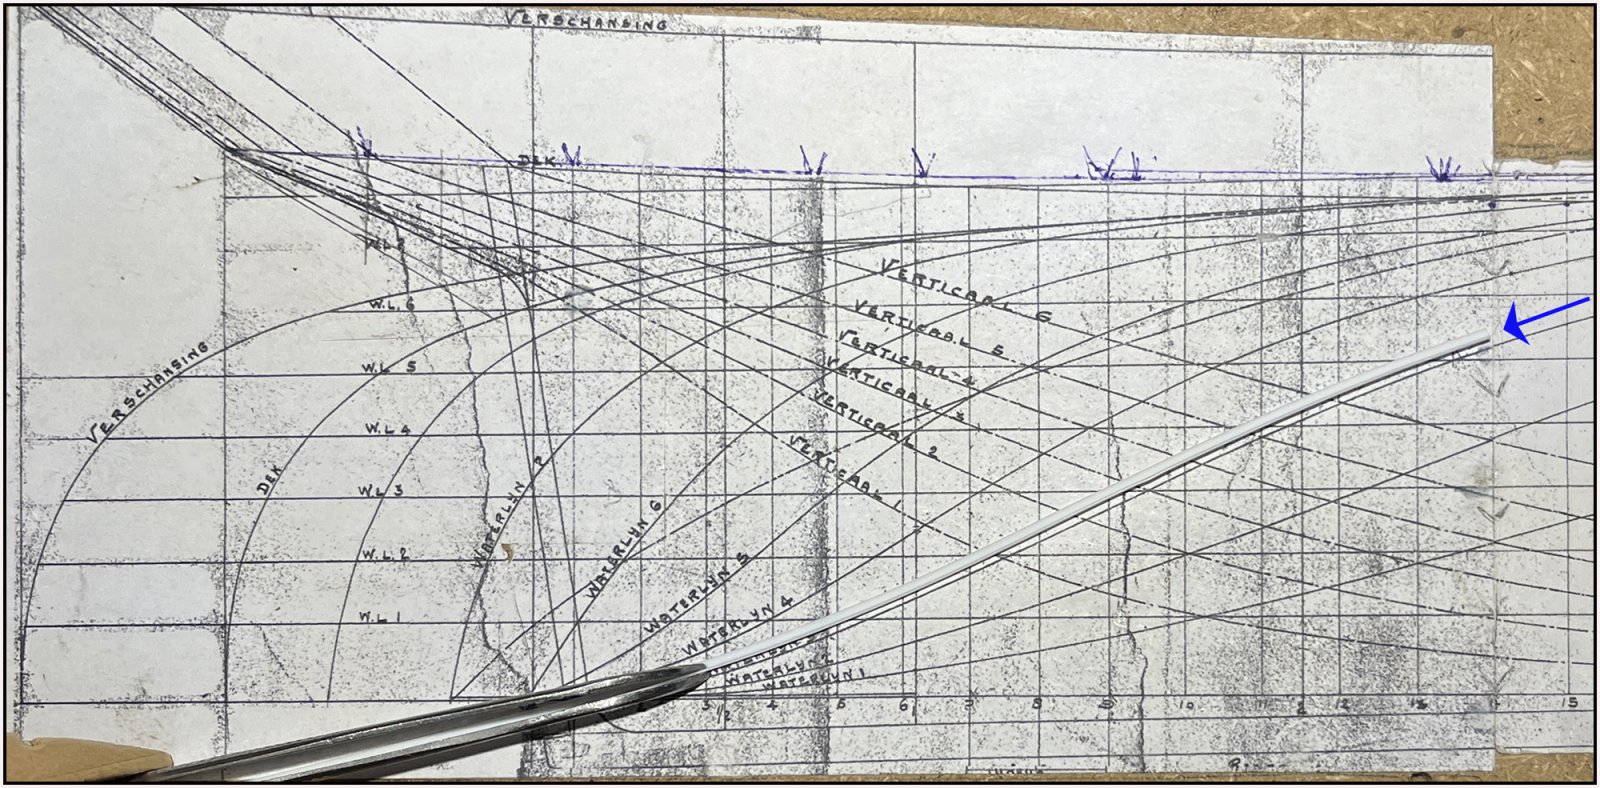 VERSCHANSING
DEK
W.L 7
W.L. 6
W.L 5
W.L 4
W.L 3
W.L. 2
W.L 1
VERSCHANSING
DEK
WATERLYN P
WATERLYN 6
WATERLYN 5
WATERLYN 4
WATERLYN 2
WATERLYN 1
VERTICAAL 6
VERTICAAL 5
VERTICAAL 4
VERTICAAL 3
VERTICAAL 2
VERTICAAL 1
3 1/2 4 5 6 7 8 9 10 11 12 13 15